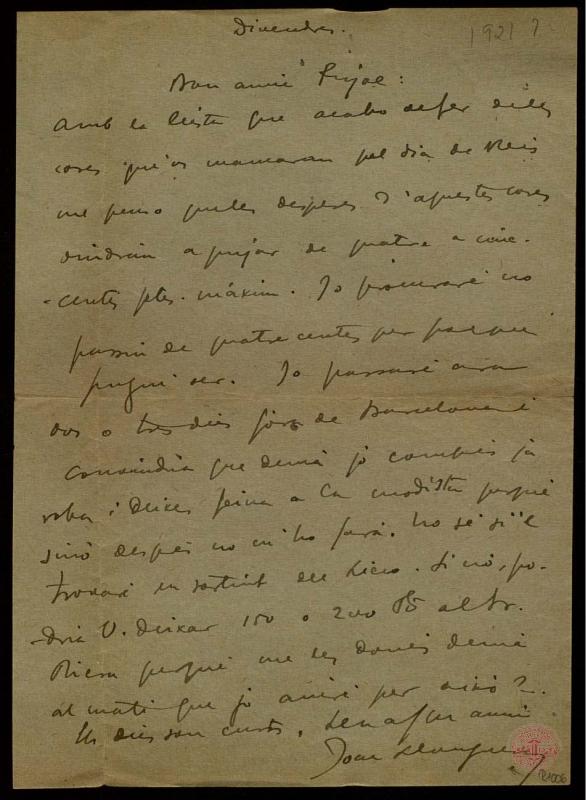 Divendres.
1921 ?
Bon amic Pujol:
Amb la llista que acabo de fer de les
coses que'ns mancaran pel dia de Reis
me penso que les despeses d'aquestes coses
vindran a pujar de quatre a cinc-
-centes ptes. màxim. Jo procuraré no
passin de quatre centes per poc que
pugui ser. Jo passaré ara
dos o tres dies fora de Barcelona i
convindria que demà jo comprés ja
roba i deixés feina a la modista perquè
sinó després no m'ho farà. No sé si'l
trovaré en sortint del Liceo. Si nó, po-
dria V. deixar 150 o 200 Pts al Sr.
Riera perquè me les donés demà
al matí que jo aniré per això?..
Els dies son curts. Seu afm amic
Joan Llongueres
R1006